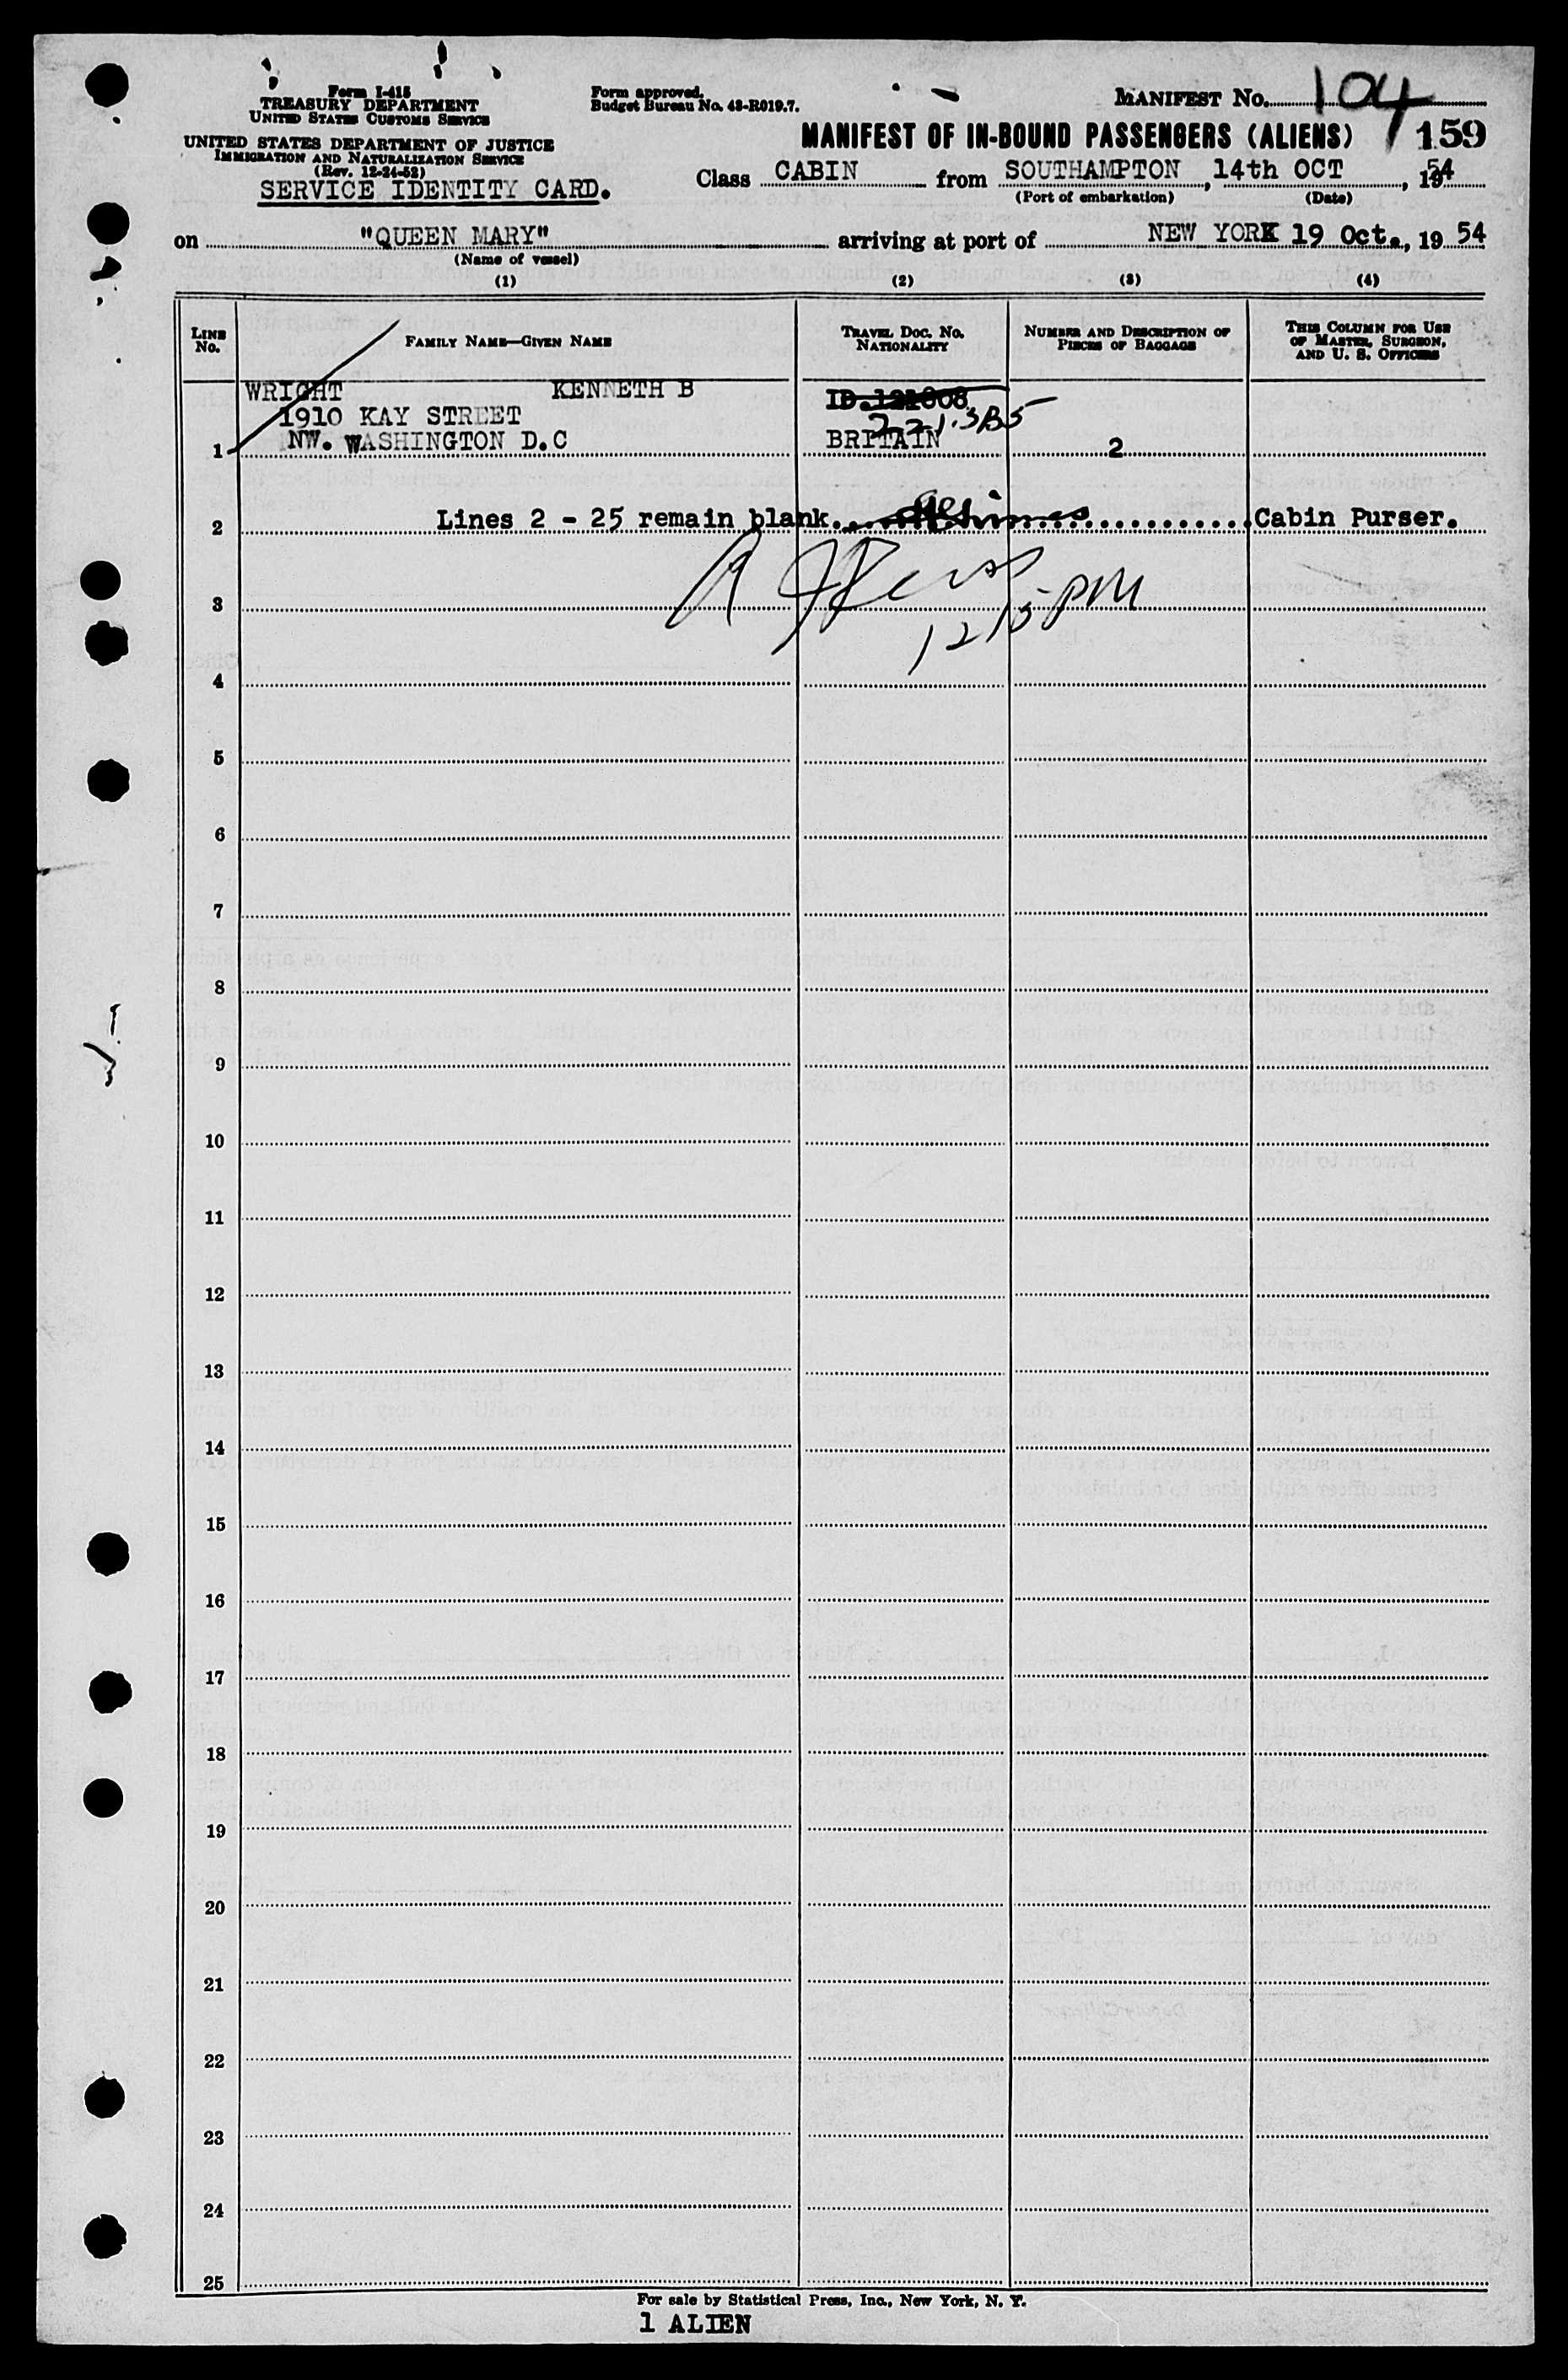 Form I-415
TREASURY DEPARTMENT
UNITED STATES CUSTOMS SERVICE
UNITED STATES DEPARTMENT OF JUSTICE
IMMIGRATION AND NATURALIZATION SERVICE
(Rev. 12-24-52)
SERVICE IDENTITY CARD.
Form approved.
Budget Bureau No. 43-R019.7.
MANIFEST NO. 104
MANIFEST OF IN-BOUND PASSENGERS (ALIENS) 159
Class CABIN from SOUTHAMPTON, 14th OCT, 1954
(Port of embarkation) (Date)
on "QUEEN MARY" arriving at port of NEW YORK 19 Oct., 19 54
(Name of vessel)
(1) (2) (3) (4)
LINE NO.
FAMILY NAME—GIVEN NAME
TRAVEL DOC. NO.
NATIONALITY
NUMBER AND DESCRIPTION OF
PIECES OF BAGGAGE
THIS COLUMN FOR USE
OF MASTER, SURGEON,
AND U. S. OFFICERS
WRIGHT KENNETH B ID.121808
1910 KAY STREET
1 NW. WASHINGTON D.C BRITAIN 2
2 Lines 2 - 25 remain blank. Cabin Purser.
3 1215 PM
4
5
6
7
8
9
10
11
12
13
14
15
16
17
18
19
20
21
22
23
24
25
For sale by Statistical Press, Inc., New York, N. Y.
1 ALIEN